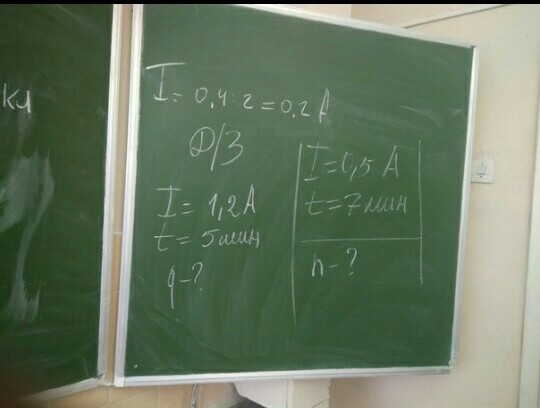 кл
I = 0,4 : 2 = 0,2 А
Д/З
I = 1,2 А
t = 5 мин
q - ?
I = 0,5 А
t = 7 мин
n - ?